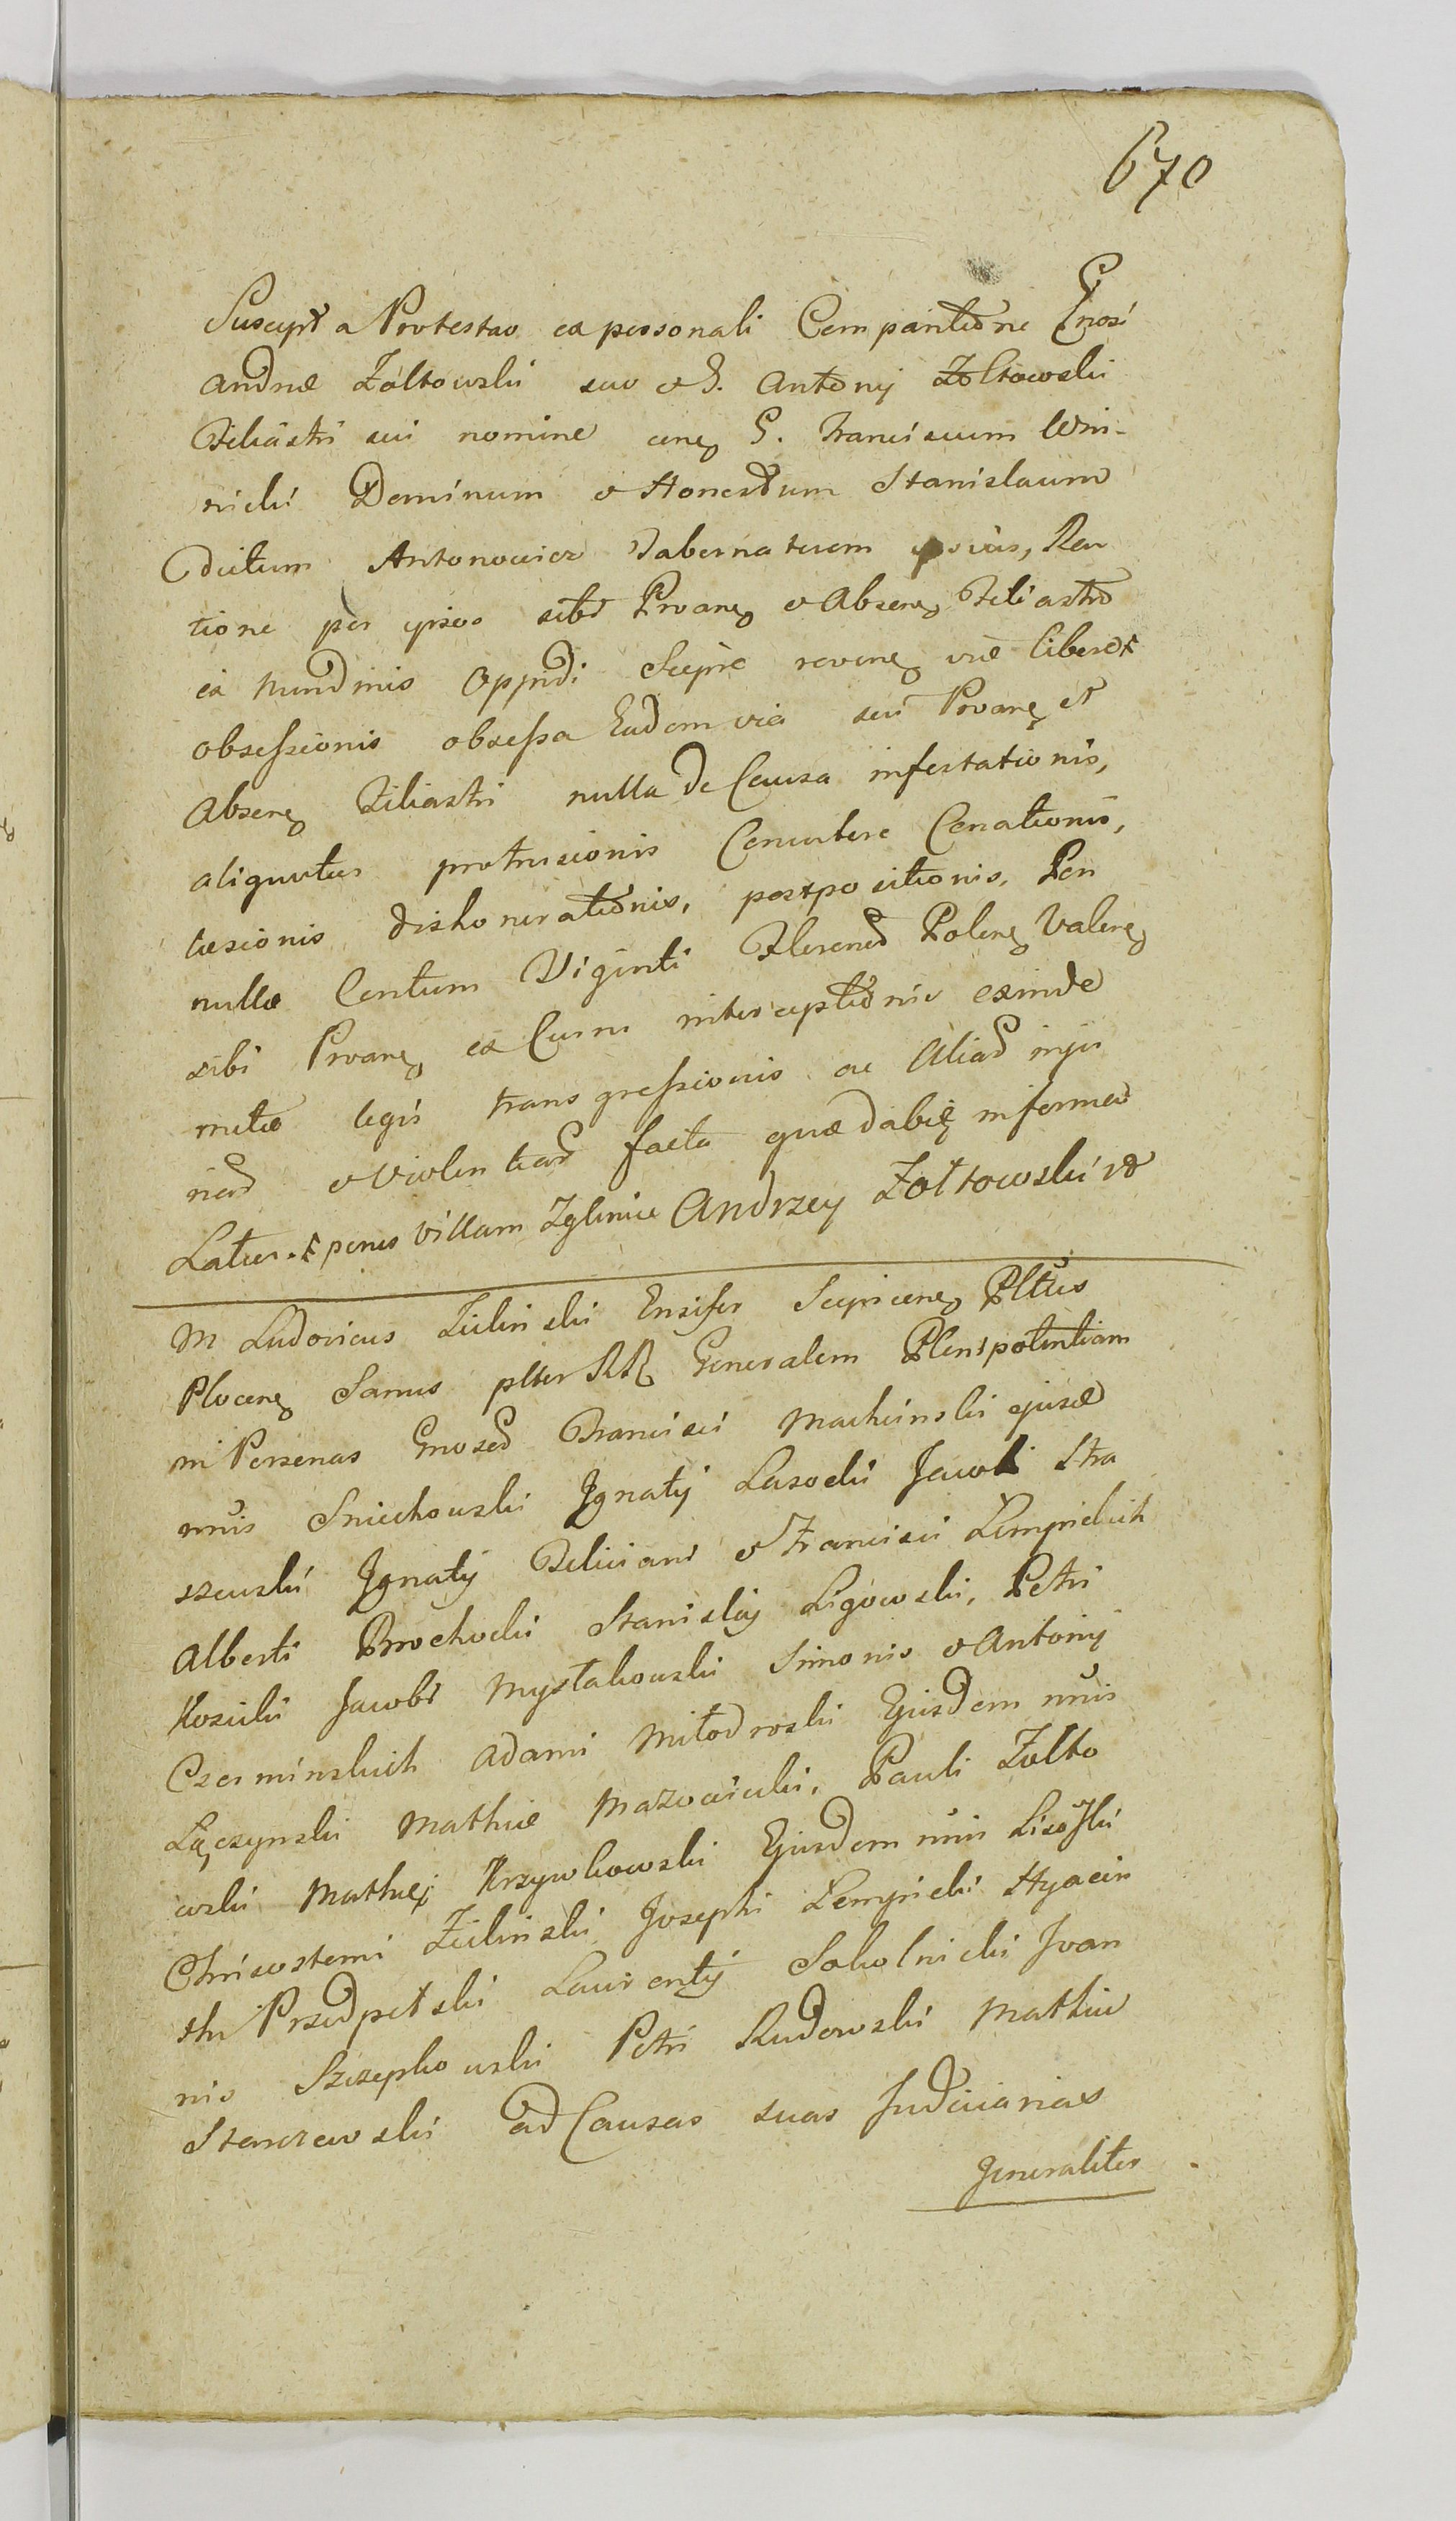 670
Suscepta Protestao ex personali Comparitione Gnosi
Andreæ Zołtowski suo et G. Antonij Zołtowski
Filiastri sui nomine cong G. Franciscum Win-
nicki Dominum et Honestum Stanislaum
dictum Antonowicz Tabernatorem ipsius, Ra
tione per ipsos sibi Proang et Abseng Filiastro
ex Nundinis Oppidi Sieprc reveng viæ liberæ
obsessionis obsessa Eadem via sui Proang et
Abseng Filiastri nulla de Causa infestationis,
protrusionis
læsionis dishonorationis, postpositionis, Pen
nulle Centum Viginti Florenor Poleng Valeng
sibi Proang ex Curru interceptionis exinde
mitæ legis transgressionis ac Aliar inju
riar et Violentiar facta quæ dabit informa
Latur. penes Villam Zglinice Andrzey Zołtowski
M Ludovicus Zieliński Ensifer Sieprceng Pltus
Ploceng Sanus plter RR Generalem Plenipotentiam
in Personas Gnosor Francisci Machcinski ejusd
nnis Sniechowski Ignatij Lasocki Jacobi Stra
szewski Ignatij Feliciani et Francisci Lempickich
Alberti Brochocki Stanislai Ligowski, Petri
Kosicki Jacobi Mystkowski Simonis et Antonij
Czerminskich Adami Miłodroski Ejusdem nnis
Lączynski Mathiæ Mazowiecki, Pauli Zolto
wski Mathiæ Krzywkowski Ejusdem nnis Lisowski
Chrisostomi Zielinski Josephi Lempicki Hyacin
thi Przedpelski Laurentij Sokolnicki Joan
nis Szczepkowski Petri Rudowski Mathiæ
Starorzewski ad Causas suas Judiciarias
Generaliter